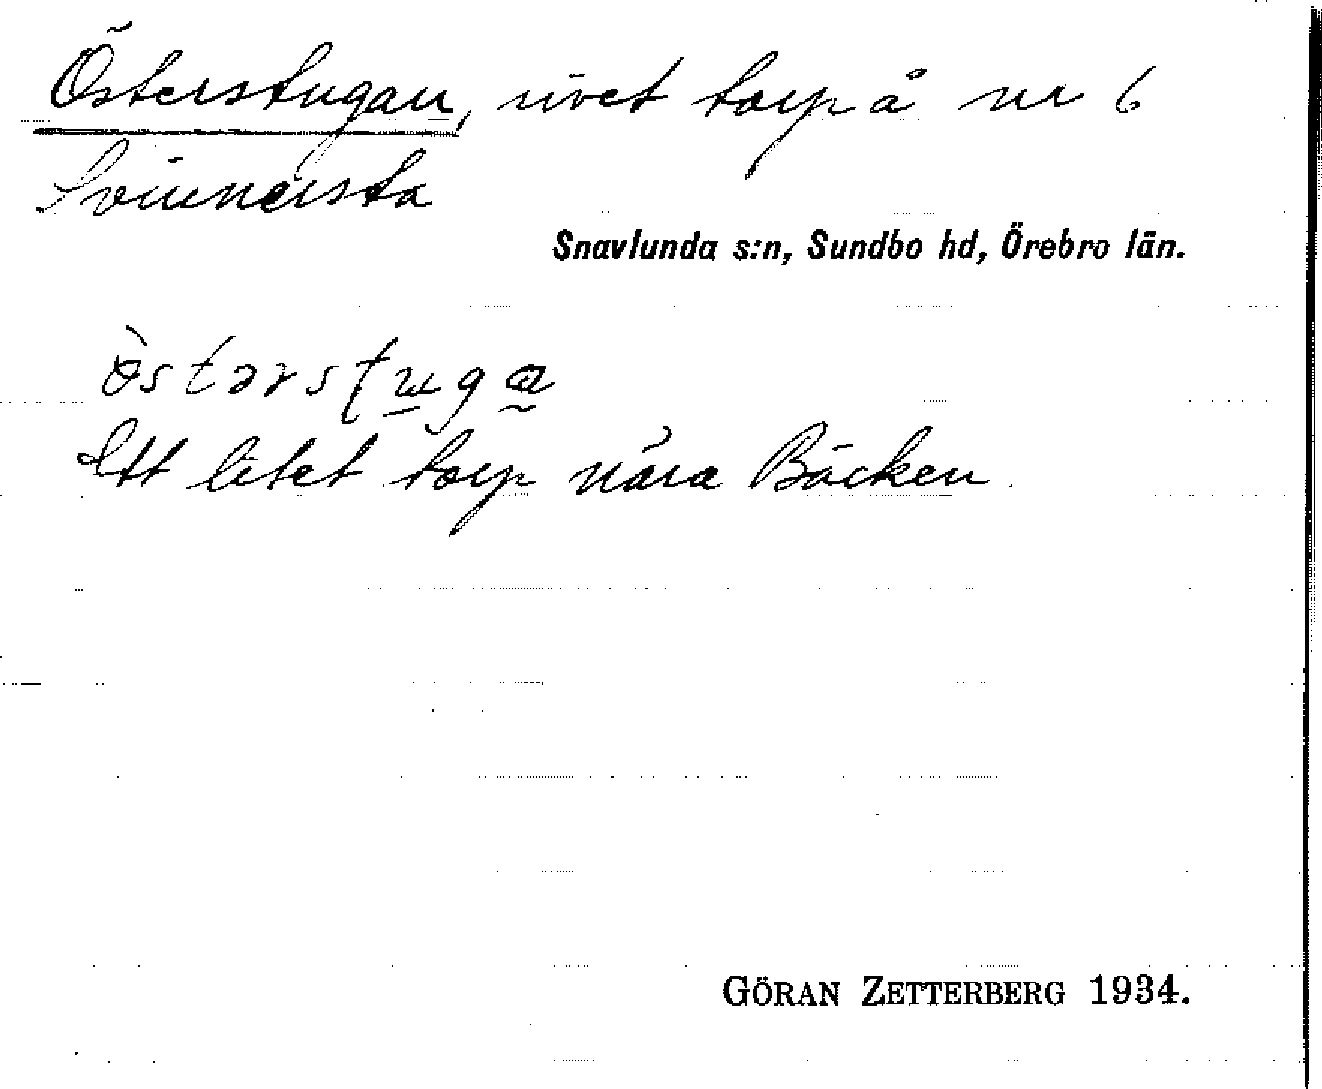 Österstugan, rivet torp å nr 6
Svinnersta
Snavlunda s:n, Sundbo hd, Örebro län.
Ett litet torp nära Bäcken.
GÖRAN ZETTERBERG 1934.